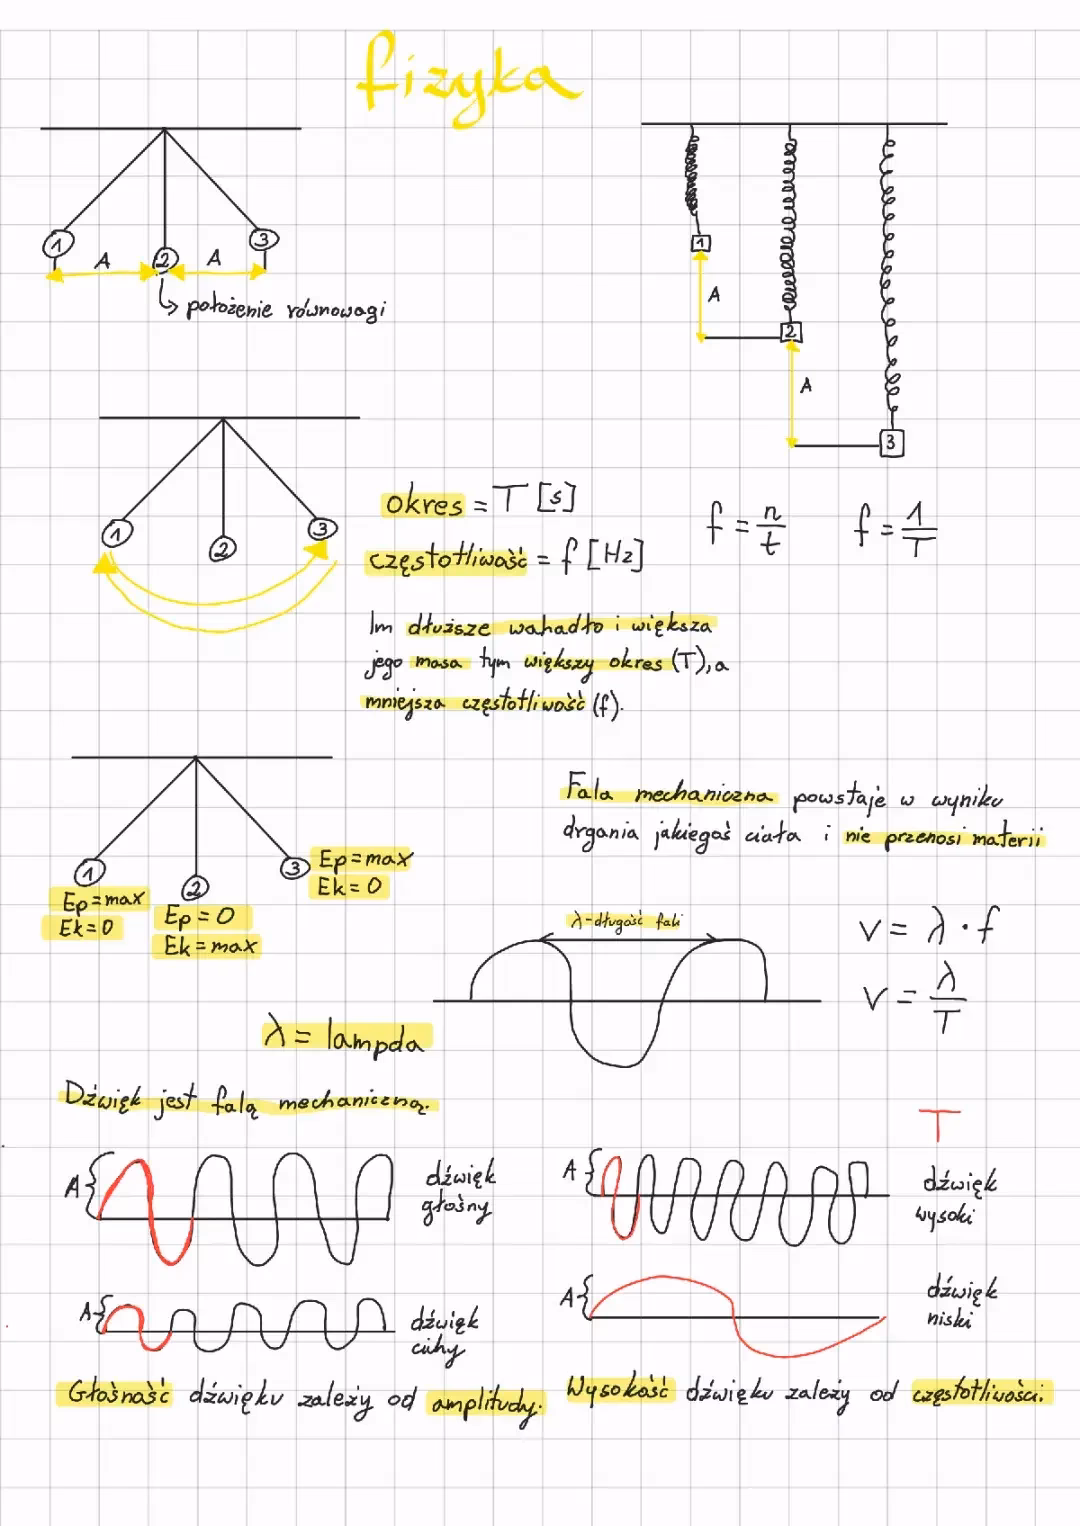 fizyka
1
2
3
A
A
położenie równowagi
1
2
3
A
A
1
2
3
okres = T [s]
częstotliwość = f [Hz]
f = n/t
f = 1/T
Im dłuższe wahadło i większa
jego masa tym większy okres (T), a
mniejsza częstotliwość (f).
1
2
3
Ep = max
Ek = 0
Ep = 0
Ek = max
Ep = max
Ek = 0
Fala mechaniczna powstaje w wyniku
drgania jakiegoś ciała i nie przenosi materii
λ - długość fali
v = λ · f
v = λ/T
λ = lampda
Dźwięk jest falą mechaniczną.
T
A
dźwięk
głośny
A
dźwięk
wysoki
A
dźwięk
cichy
A
dźwięk
niski
Głośność dźwięku zależy od amplitudy.
Wysokość dźwięku zależy od częstotliwości.